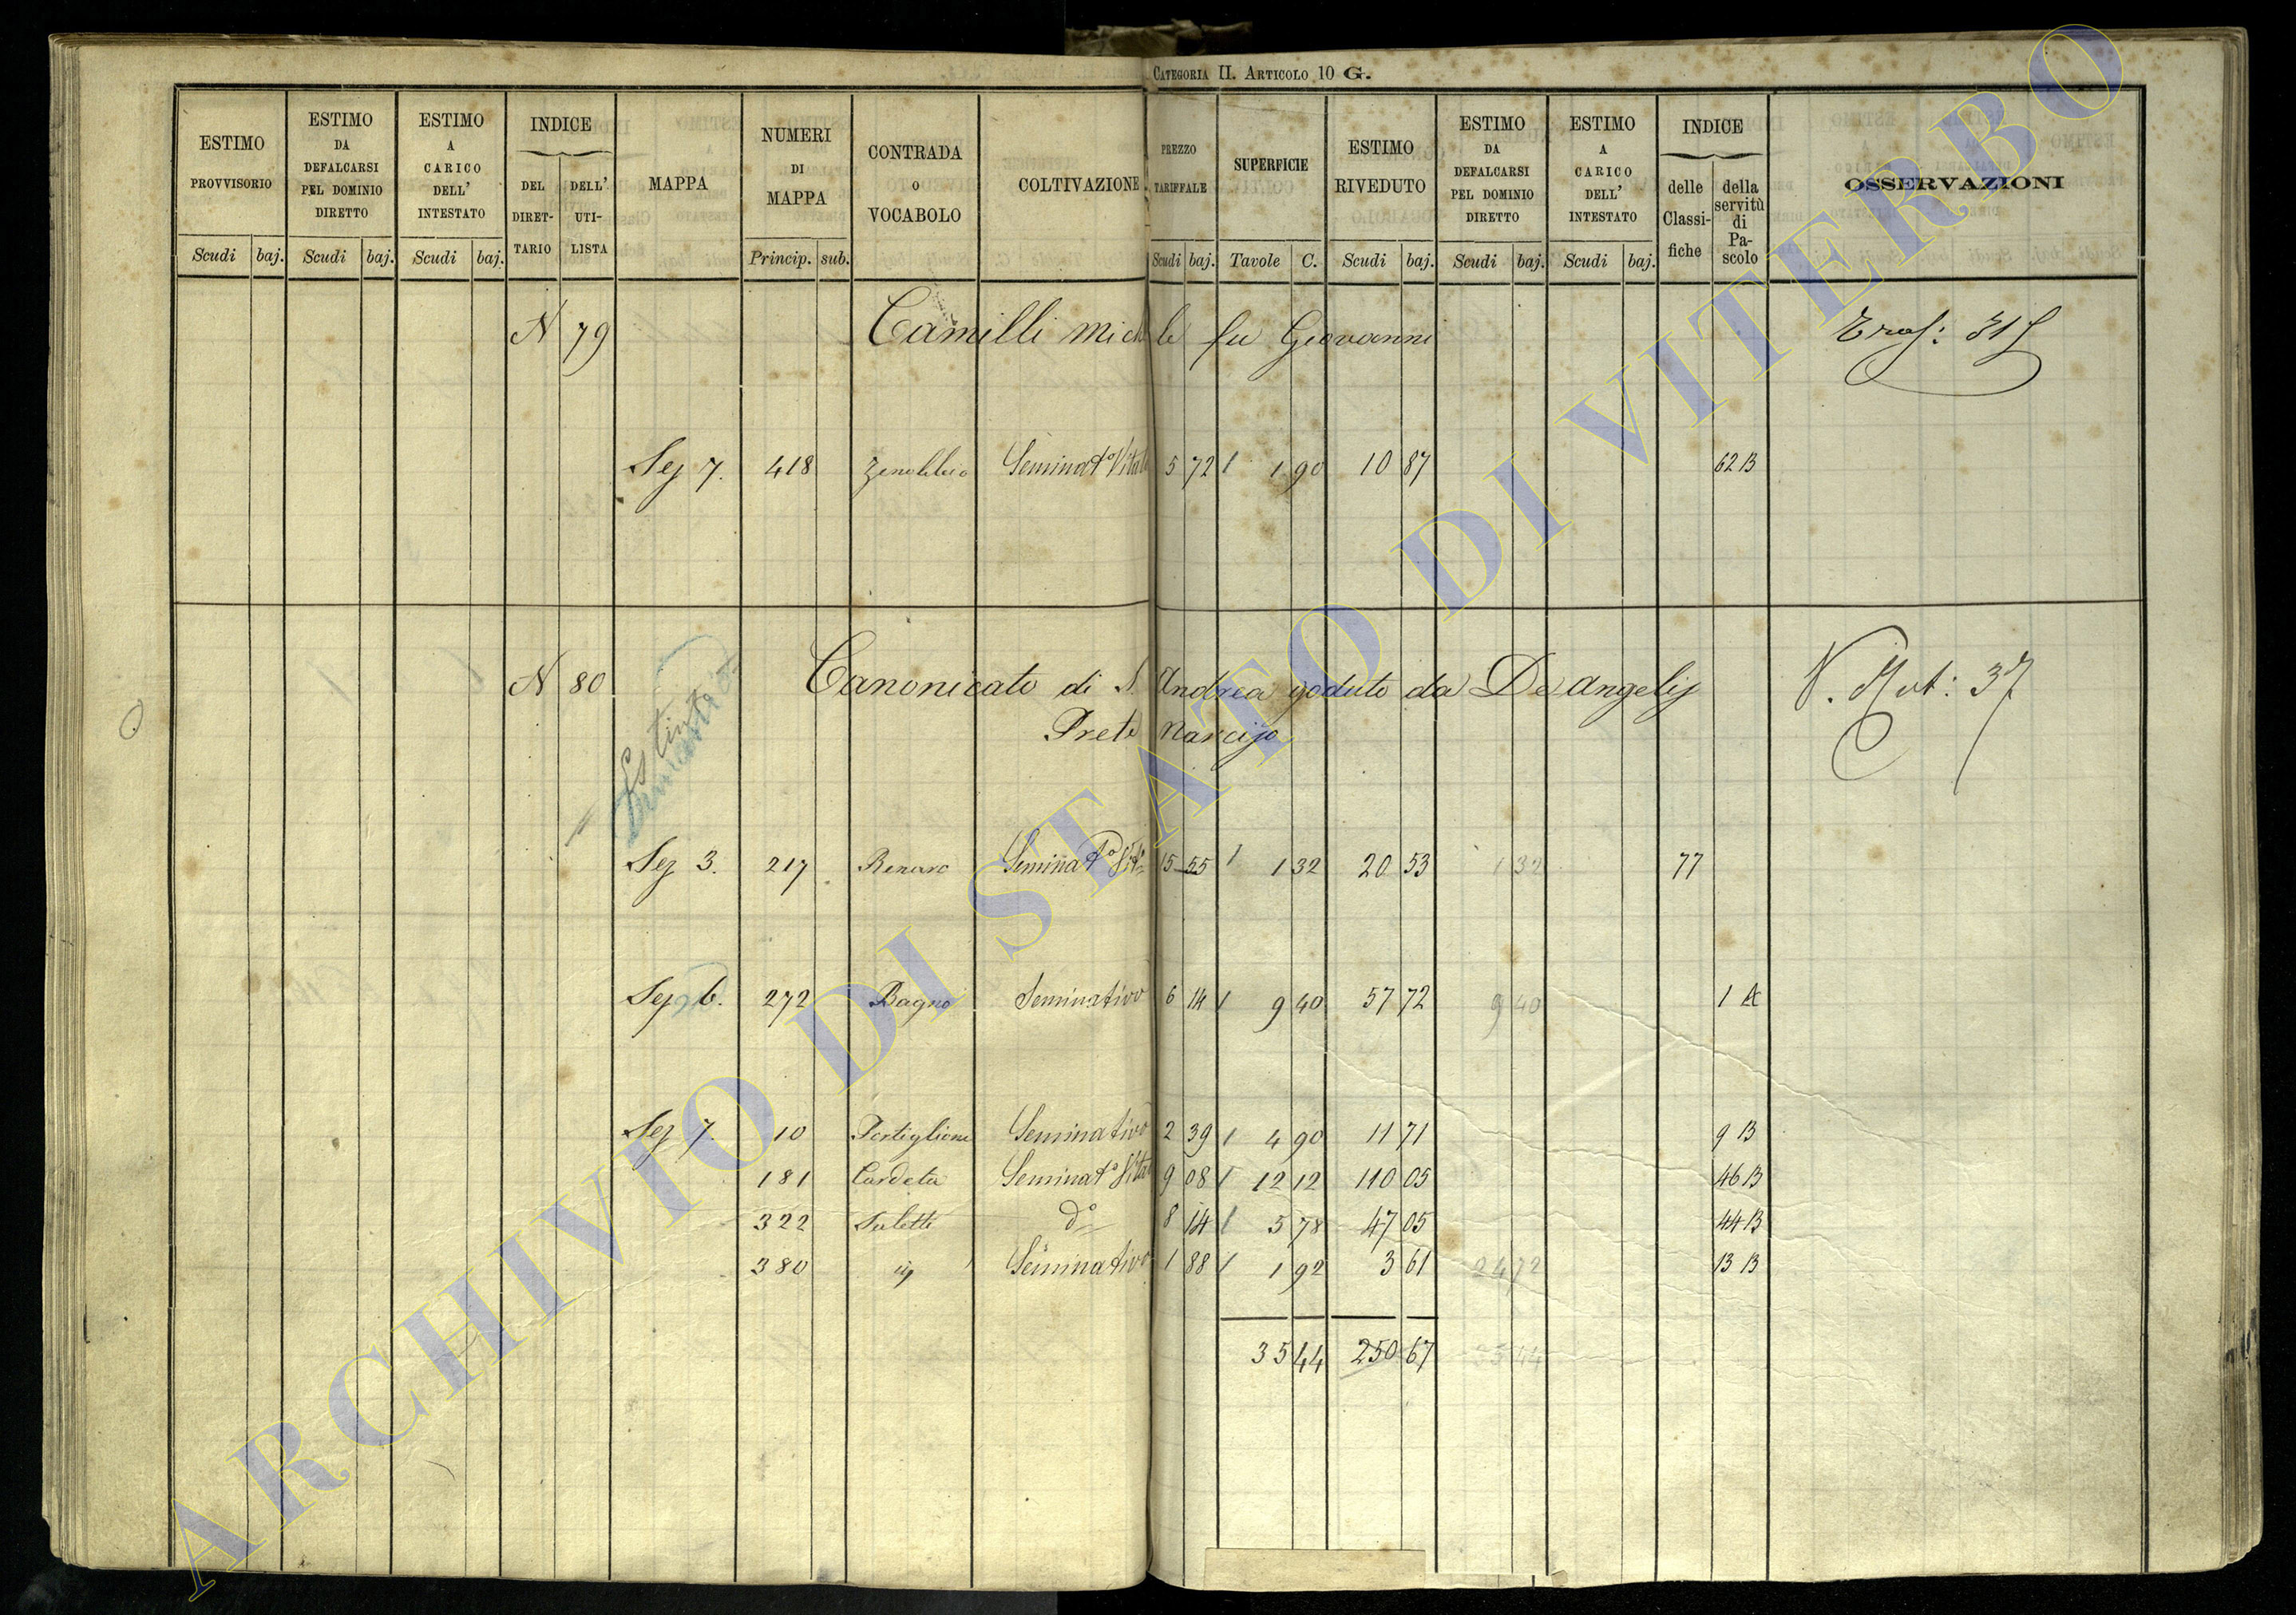 CATEGORIA II. ARTICOLO 10 G.
ESTIMO PROVVISORIO Scudi baj.
ESTIMO DA DEFALCARSI PEL DOMINIO DIRETTO Scudi baj.
ESTIMO A CARICO DELL' INTESTATO Scudi baj.
INDICE DEL DIRET-TARIO DELL' UTI-LISTA
MAPPA
NUMERI DI MAPPA Princip. sub.
CONTRADA O VOCABOLO
COLTIVAZIONE
PREZZO TARIFFALE Scudi baj.
SUPERFICIE Tavole C.
ESTIMO RIVEDUTO Scudi baj.
ESTIMO DA DEFALCARSI PEL DOMINIO DIRETTO Scudi baj.
ESTIMO A CARICO DELL' INTESTATO Scudi baj.
INDICE delle Classi-fiche della servitù di Pa-scolo
OSSERVAZIONI
N 79 Camilli Michele fu Giovanni
Sez 7. 418 Seminat° Vitato 5 72 1 1 90 10 87 62 B
N 80 Canonicato di S. Andrea goduto da De Angelis V. Mut: 37
Prete Narciso
Estinto
Sez 3. 217 Seminat° Vit° 15 55 1 1 32 20 53 1 32 77
Sez 6. 272 Bagno Seminativo 6 14 1 9 40 57 72 9 40 1 A
Sez 7. 10 Portiglione Seminativo 2 39 1 4 90 11 71 9 B
181 Cardeta Seminat° Vitat 9 08 1 12 12 110 05 46 B
322 d° 8 14 1 5 78 47 05 44 B
380 Seminativo 1 88 1 1 92 3 61 24 72 13 B
35 44 250 67 35 44
ARCHIVIO DI STATO DI VITERBO